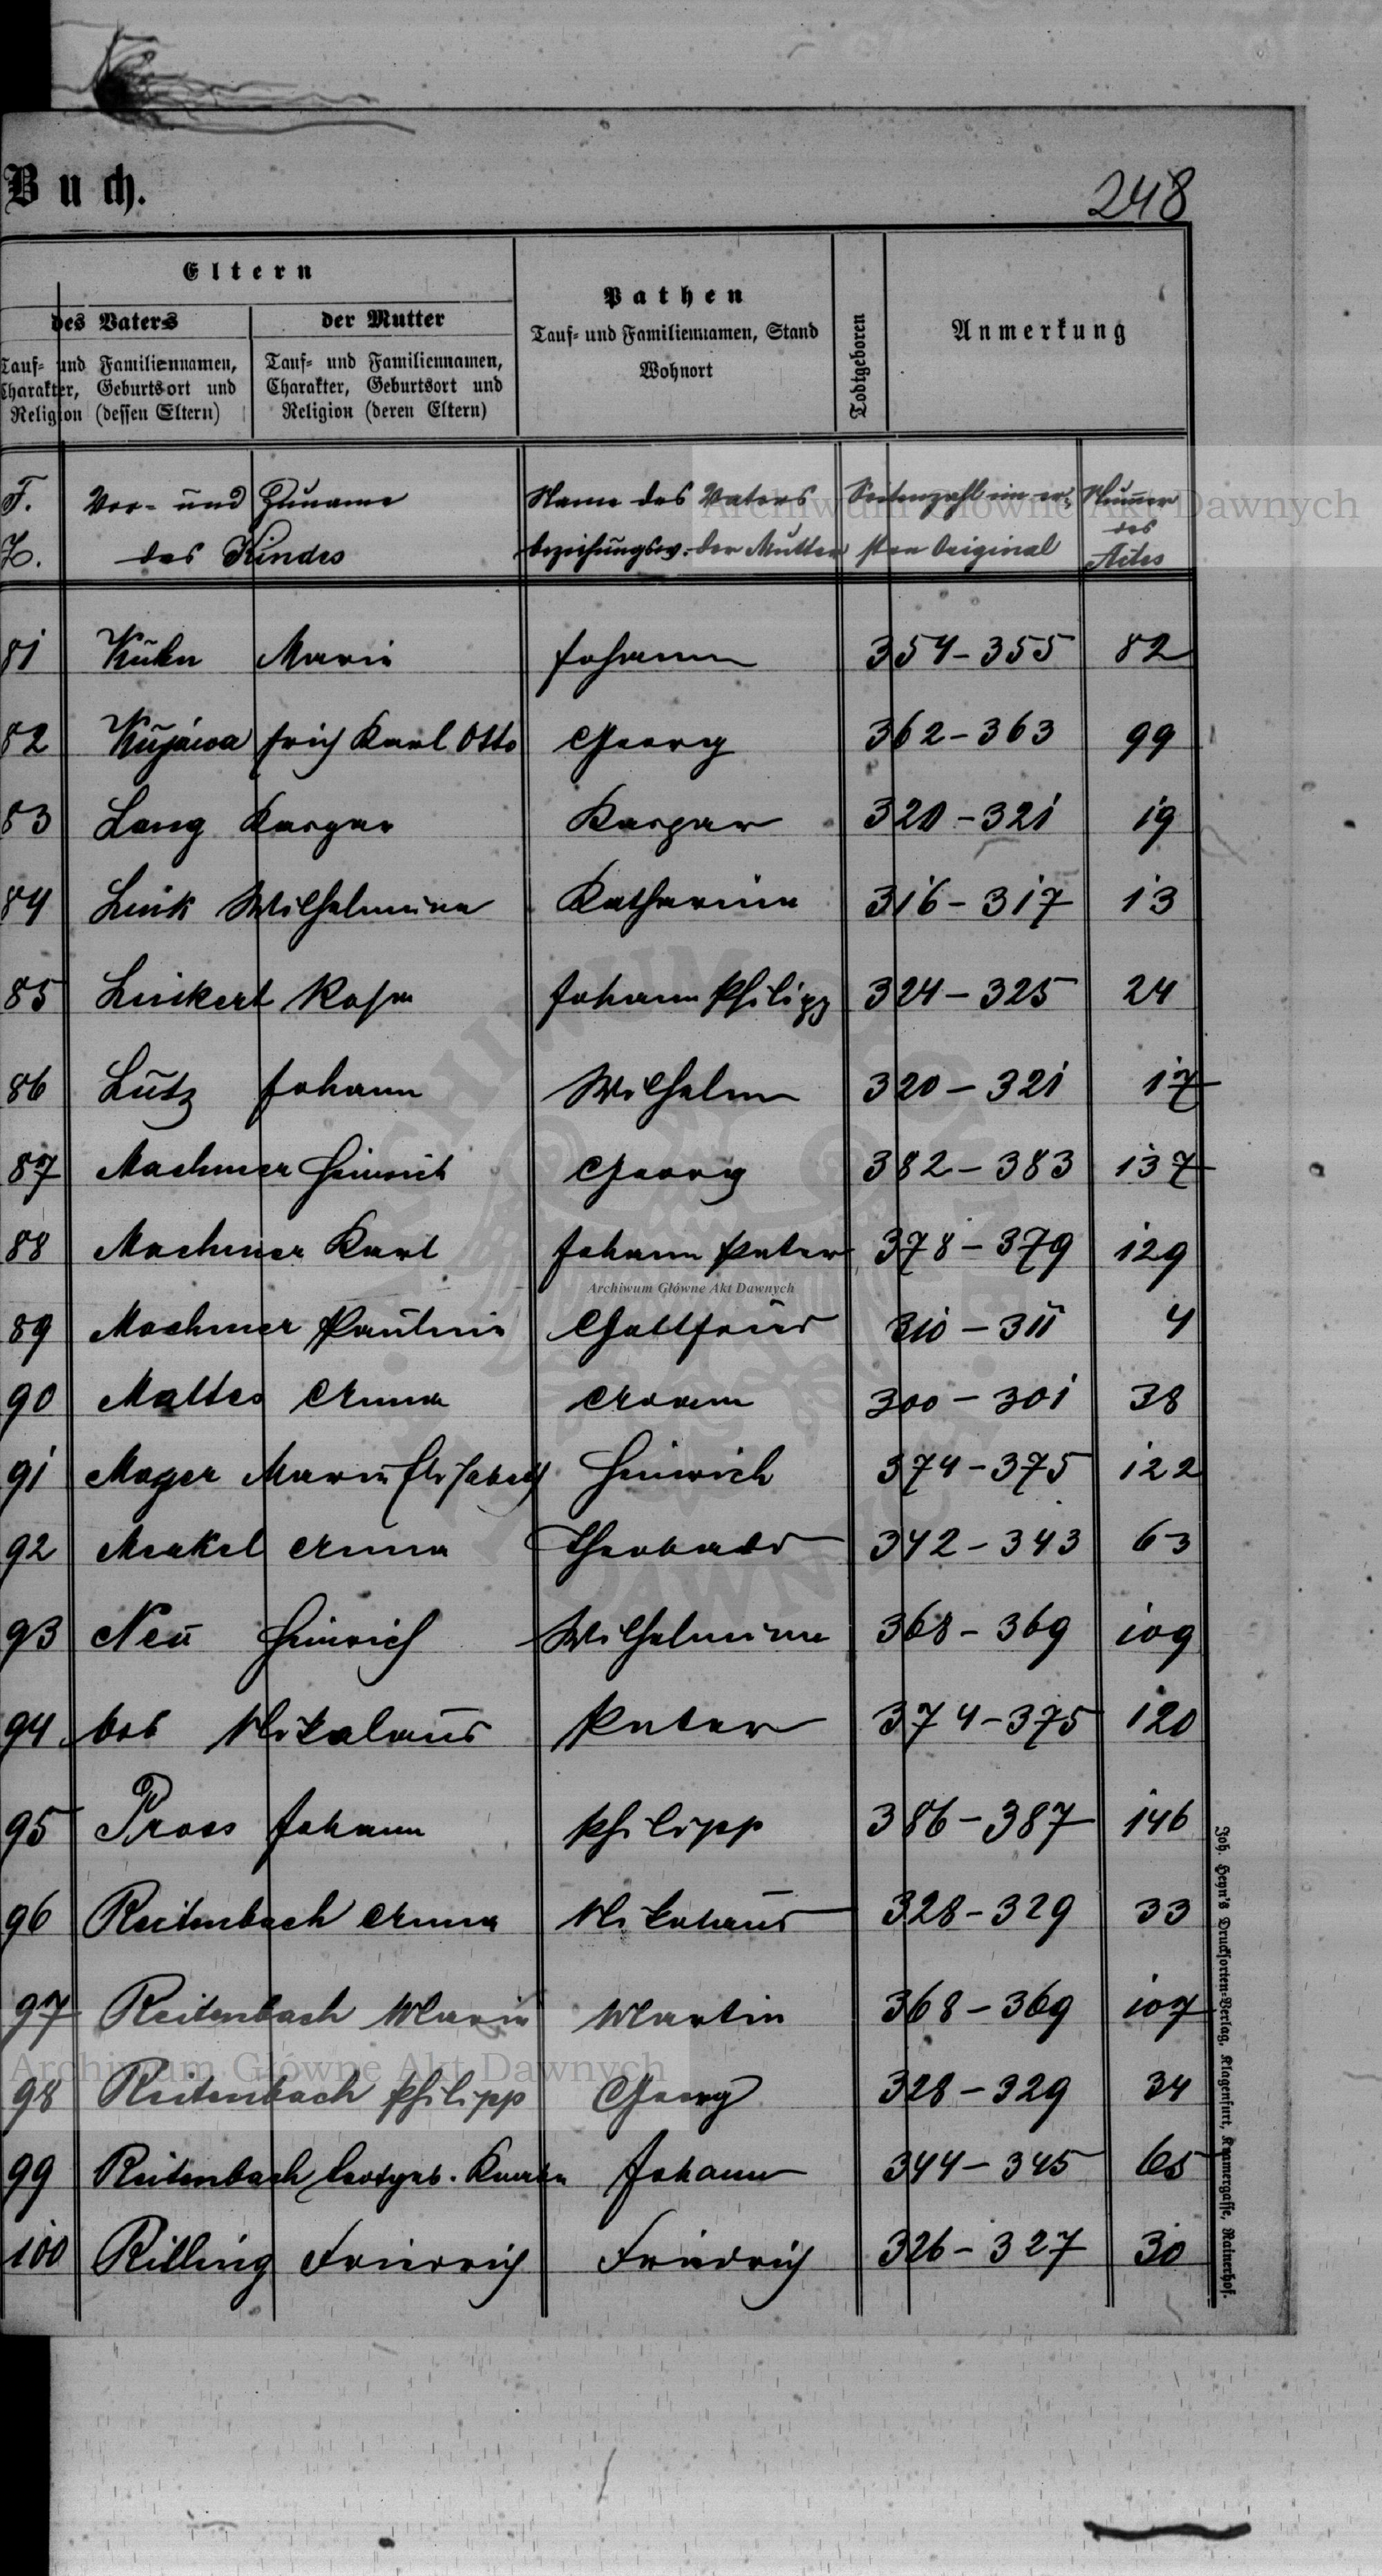 Buch.
248
Eltern
des Vaters
der Mutter
Pathen
Todtgeboren
Anmerkung
Tauf- und Familiennamen, Charakter, Geburtsort und Religion (dessen Eltern)
Tauf- und Familiennamen, Charakter, Geburtsort und Religion (deren Eltern)
Tauf- und Familiennamen, Stand
Wohnort
F. Vor- und Zuname Name des Vaters Seitenzahl im er- Nummer
Z. des Kindes beziehungsw. der Mutter sten Original des Actes
Archiwum Główne Akt Dawnych
81 Kühn Marie Johann 354-355 82
82 Kujáwa Erich Karl Otto Georg 362-363 99
83 Lang Kaspar Kaspar 320-321 19
84 Link Wilhelmine Katharina 316-317 13
85 Linkert Rosa Johann Philipp 324-325 24
86 Lutz Johann Wilhelm 320-321 17
87 Machmer Heinrich Georg 382-383 137
88 Machmer Karl Johann Peter 378-379 129
Archiwum Główne Akt Dawnych
89 Machmer Pauline Gottfried 310-311 4
90 Mattes Anna Adam 300-301 38
91 Mayer Marie Elisabeth Heinrich 374-375 122
92 Merkel Anna Theobald 342-343 63
93 Neu Heinrich Wilhelmine 368-369 109
94 Nikolaus Peter 374-375 120
95 Pross Johann Philipp 386-387 146
96 Reitenbach Anna Nikolaus 328-329 33
97 Reitenbach Marie Martin 368-369 107
Archiwum Główne Akt Dawnych
98 Reitenbach Philipp Georg 328-329 34
99 Reitenbach todtgeb. Knabe Johann 344-345 65
100 Rilling Friedrich Friedrich 326-327 30
Joh. Heyn's Drucksorten-Verlag, Klagenfurt, Kramergasse, Rainerhof.